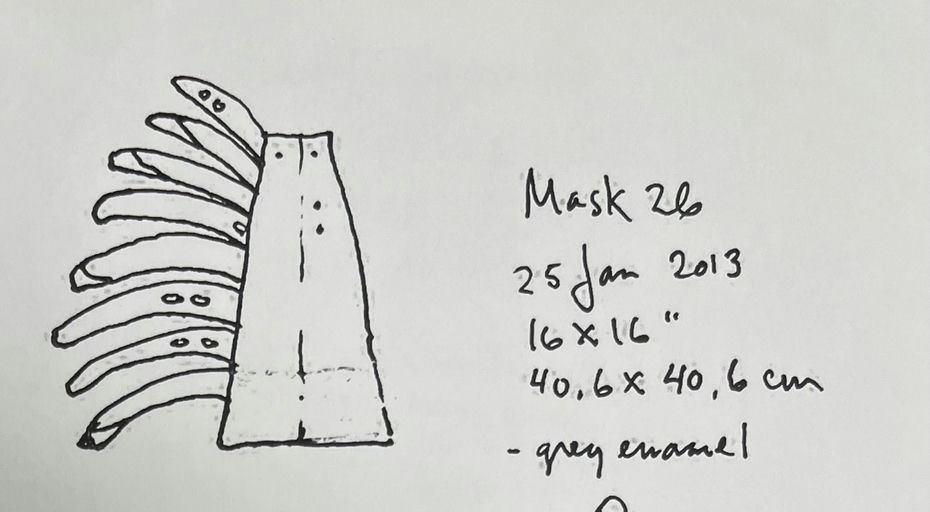 Mask 26
25 Jan 2013
16 x 16"
40,6 x 40,6 cm
- grey enamel